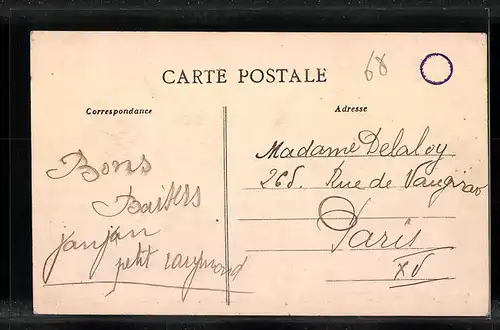 68
CARTE POSTALE
Correspondance
Adresse
Bons
Baisers
janjan
petit raymond
Madame Delaloy
268. Rue de Vaugirar
Paris
XV